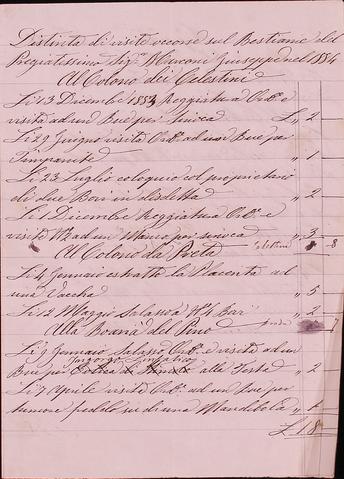 Distinta di visite occorse sul Bestiame del
Pregiatissimo Sig.r Marconi Giuseppe nel 1884
Al Colono dei Celestini
Li 13 Dicembre 1883 Reggiatura Ord.a e
visita ad un Bue per £ 2 -
Li 29 Giugno visita Ord.a ad un Bue per
Timpanite " 1
Li 23 Luglio coloquio col proprietario
di due Bovi in disdetta " 2
Li 1 Dicembre Reggiatura Ord.a e
visite N. 2 ad un Manzo per " 3
Al Colono da Celestini 8 - 8
Li 4 Jennaio estratta la Placenta ad
una Vacha " 5
Li 12 Maggio Salassa N. 4 " 2
Alla Boaria del Pino 7
Li 3 Jennaio Salasso Ord.o e visita ad un
Bue per alla Testa " 2 -
Li 7 Aprile visita Ord.a ad un Bue per
tumore fredo su di una Mandibola " 1
£ 18